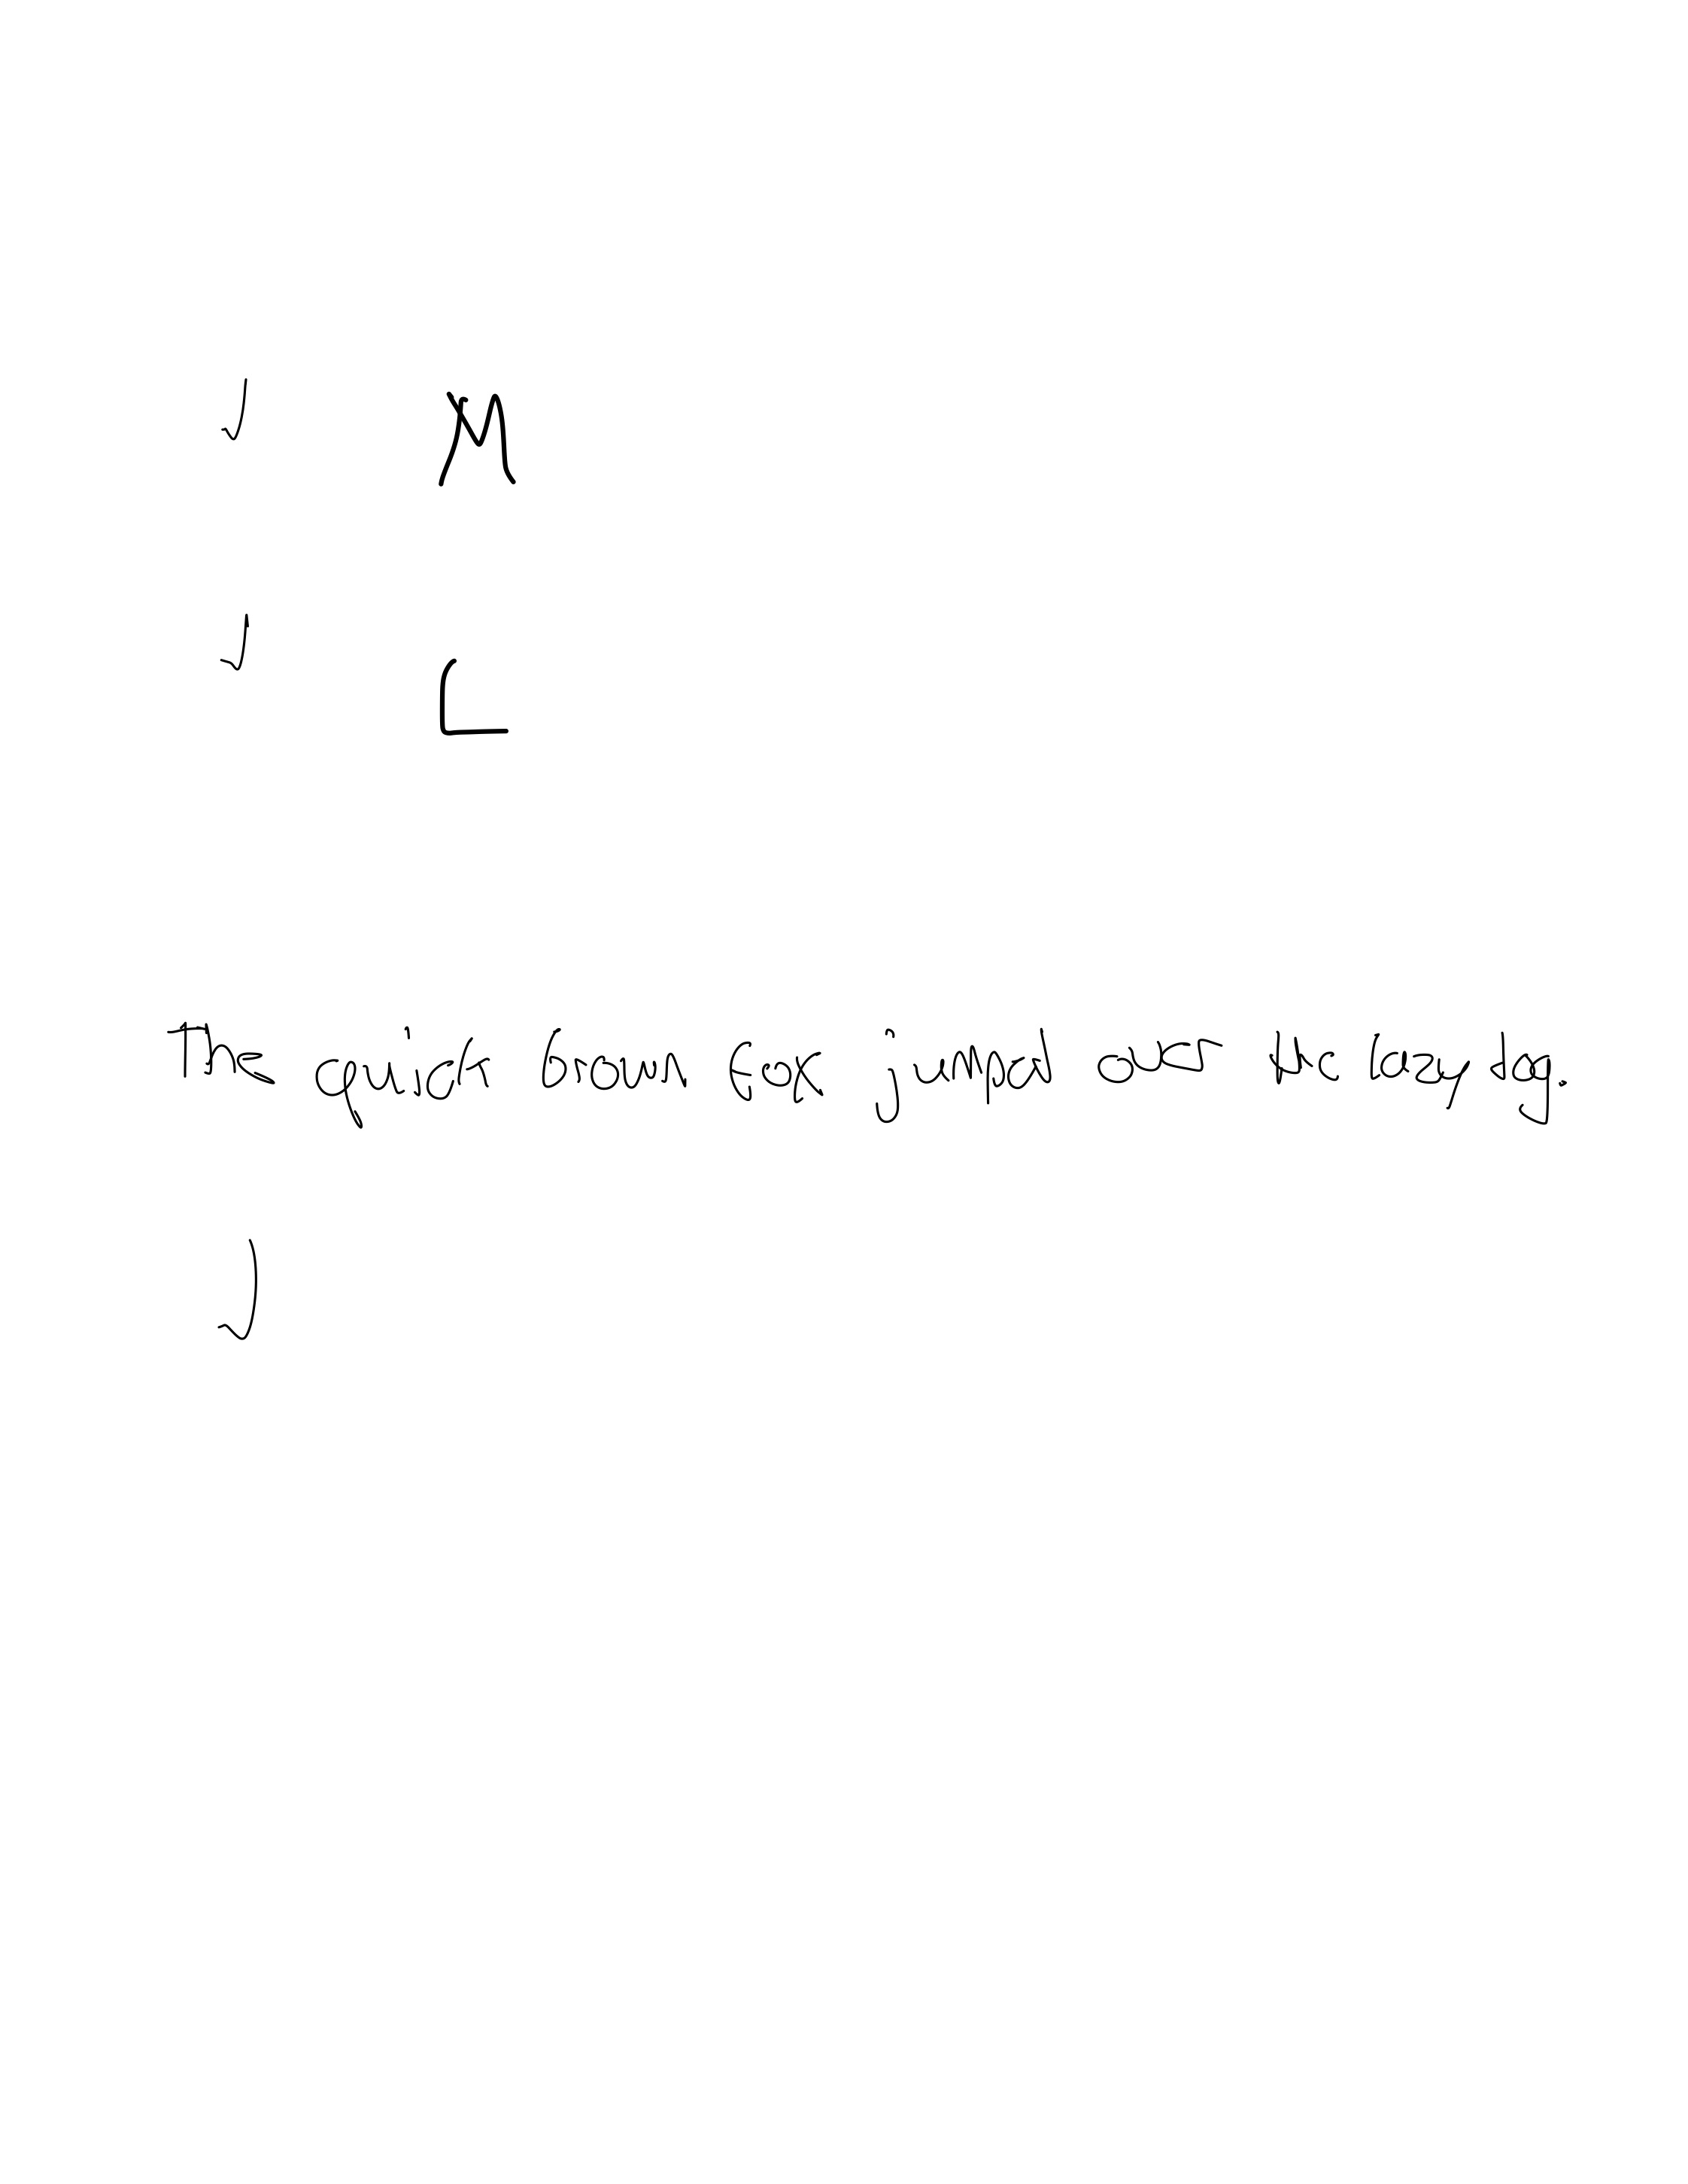 J M
J L
The quick brown fox jumped over the lazy dog.
J